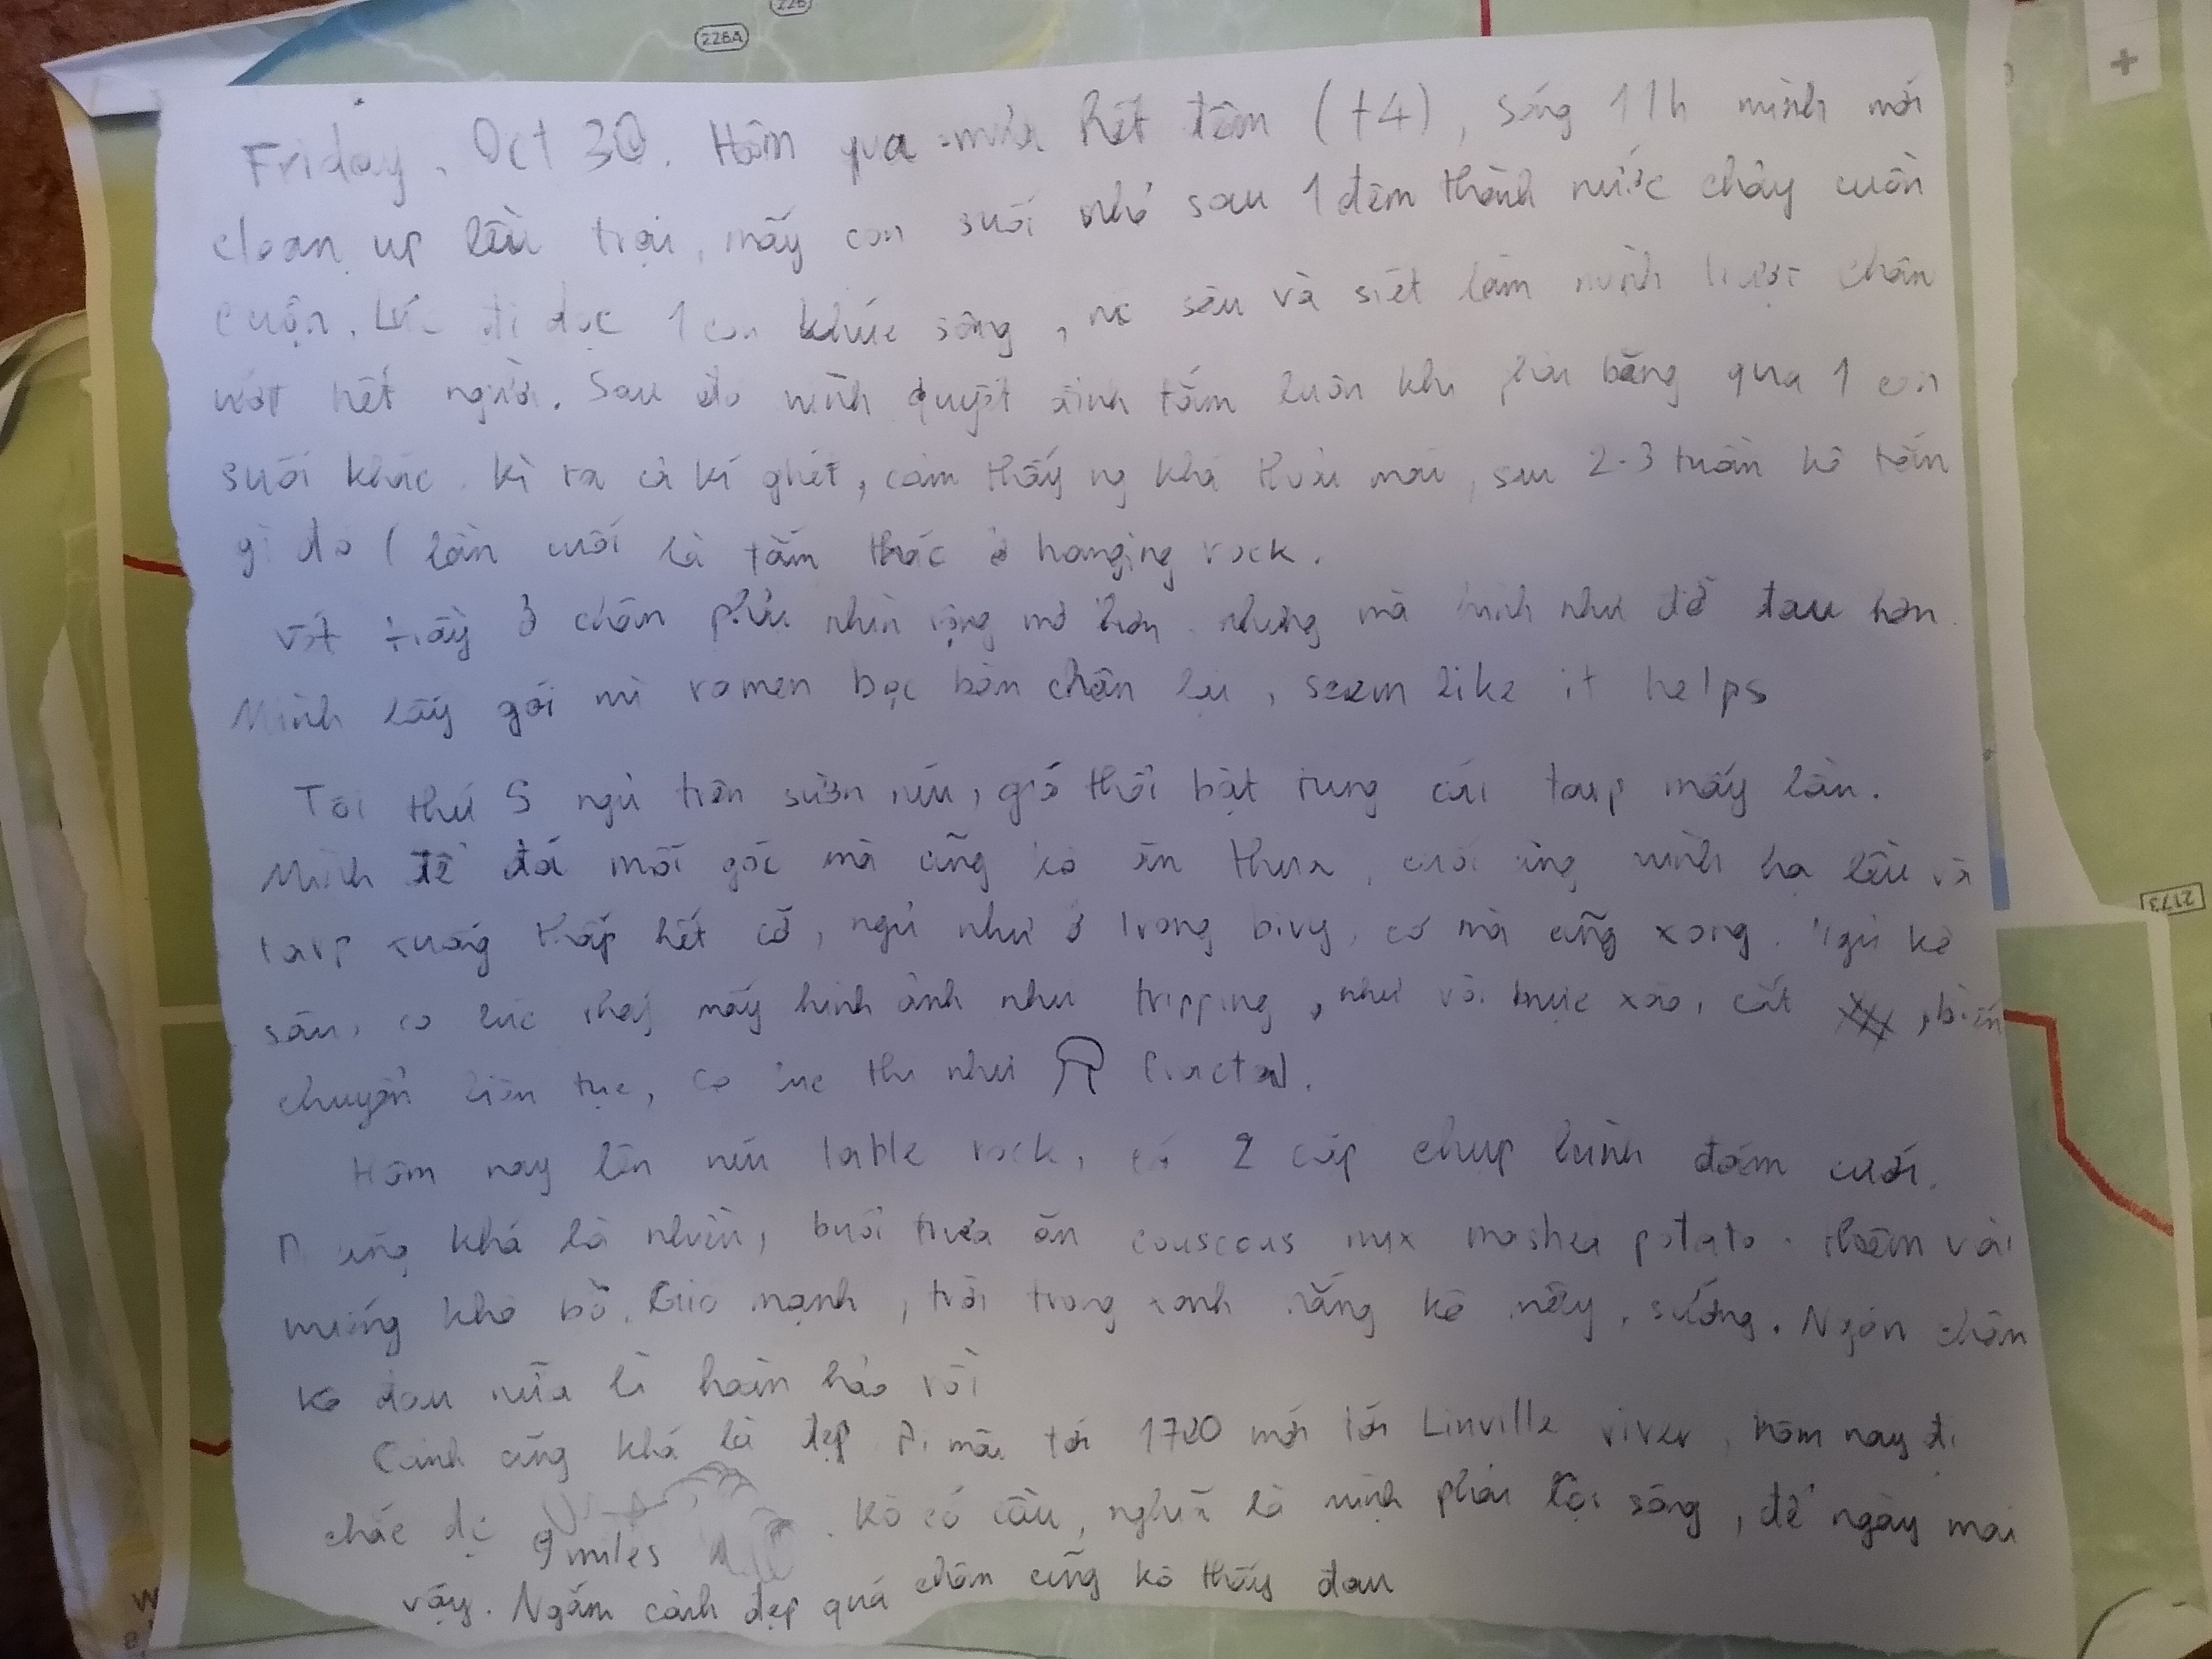 226
226A
Friday, Oct 30. Hôm qua mưa hết đêm (t4), sáng 11h mình mới
clean up lều trại, mấy con suối nhỏ sau 1 đêm thành nước chảy cuồn
cuộn. Lúc đi dọc 1 con khúc sông, nc sâu và siết lắm mình trượt chân
ướt hết người. Sau đó mình quyết định tắm luôn khi phải băng qua 1 con
suối khác. Kì ra cả kí ghét, cảm thấy ng khá thoải mái, sau 2-3 tuần kô tắm
gì đó (lần cuối là tắm thác ở hanging rock.
Vết trầy ở chân phải nhìn rộng mở hơn nhưng mà hình như đỡ đau hơn.
Mình lấy gói mì ramen bọc bàn chân lại, seem like it helps
Tối thứ 5 ngủ trên sườn núi, gió thổi bật tung cái tarp mấy lần.
Mình để đá mỗi góc mà cũng kô ăn thua, cuối cùng mình hạ lều và
tarp xuống thấp hết cỡ, ngủ như ở trong bivy, cơ mà cũng xong. Ngủ kô
sâu, có lúc thấy mấy hình ảnh như tripping, như vòi bạch cát, biến
chuyển liên tục, có lúc thì như fractal.
Hôm nay lên núi table rock, có 2 cặp chụp hình đám cưới.
cũng khá là nhìn, buổi trưa ăn couscous mix mashed potato. thêm vài
miếng khô bò. Gió mạnh, trời trong xanh nắng kô mây, sướng. Ngón chân
kô đau nữa là hoàn hảo rồi
Cảnh cũng khá là đẹp. Đi mãi tới 1720 mới tới Linville river, hôm nay đi
chắc đc 9 miles. Kô có cầu, nghĩa là mình phải lội sông, để ngày mai
vậy. Ngắm cảnh đẹp quá chân cũng kô thấy đau
2173